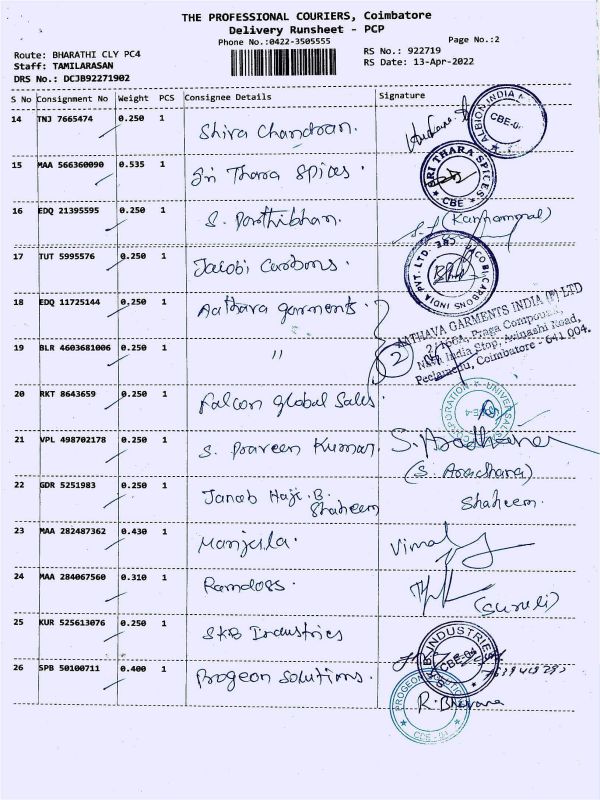 THE PROFESSIONAL COURIERS, Coimbatore
Delivery Runsheet - PCP
Phone No.:0422-3505555
Page No.:2
Route: BHARATHI CLY PC4
RS No.: 922719
Staff: TAMILARASAN
RS Date: 13-Apr-2022
DRS No.: DCJB92271902
S No Consignment No Weight PCS Consignee Details Signature
14 TNJ 7665474 0.250 1 Shiva Chandran. ALBION INDIA CBE-04
15 MAA 566360090 0.535 1 Sri Thara Spices. SRI THARA SPICES CBE
16 EDQ 21395595 0.250 1 S. Parthibhan. (Kanhamanal)
17 TUT 5995576 0.250 1 Jacobi Carbons. JACOBI CARBONS INDIA PVT. LTD. CBE
18 EDQ 11725144 0.250 1 Aathava garments
2
AATHAVA GARMENTS INDIA (P) LTD
2/106A, Praga Compound,
Nava India Stop, Avinashi Road,
Peelamedu, Coimbatore - 641 004.
19 BLR 4603681006 0.250 1 "
20 RKT 8643659 0.250 1 Falcon global Sales. UNIVERSAL CORPORATION
21 VPL 498702178 0.250 1 S. Praveen Kumar. S. Aradhana
(S. Aradhana)
22 GDR 5251983 0.250 1 Janab Haji. B. Shaheen Shaheen.
23 MAA 282487362 0.430 1 Manjula. Vimal
24 MAA 284067560 0.310 1 Ramdoss. (Guruli)
25 KUR 525613076 0.250 1 SKB Industries S.K.B. INDUSTRIES CBE-04
26 SPB 50100711 0.400 1 Progeon Solutions. PROGEON SOLUTIONS CBE-04 R. Bhavana